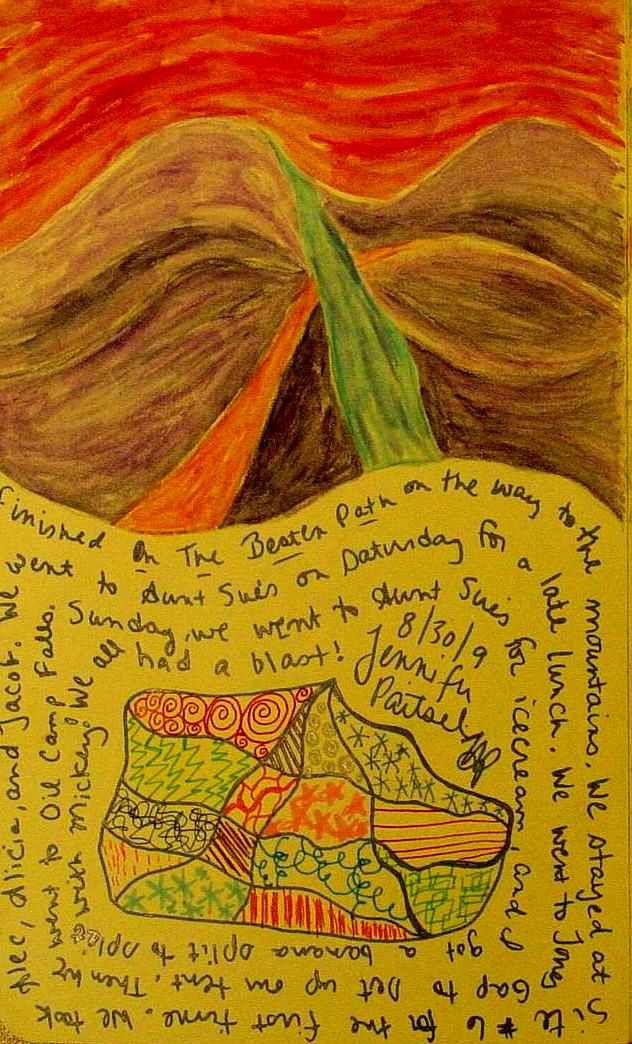 Finished On The Beaten Path on the way to the
mountains. We stayed at Site
#6 for the first time. We took
Alec, Alicia, and Jacob. We
went to Aunt Sue's on Saturday for a
late lunch. We went to Jones
Gap to set up our tent. Then we
went to Oil Camp Falls.
Sunday, we went to Aunt Sue's for
icecream, and I
got a banana split to split
with Mickey! We all
had a blast!
8/30/9
Jennifer